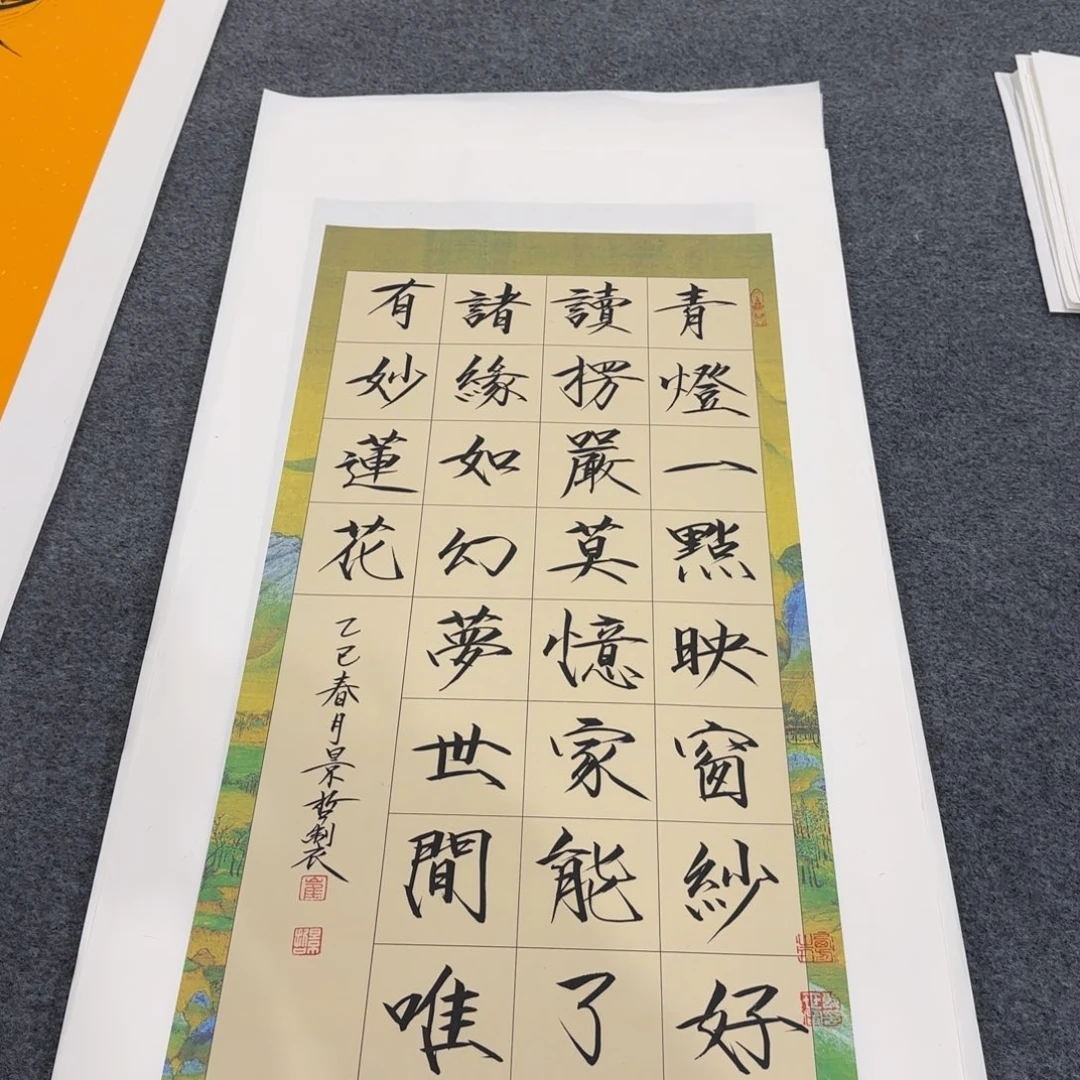 青燈一點映窗紗好
讀楞嚴莫憶家能了
諸緣如幻夢世間唯
有妙蓮花
乙巳春月景哲製